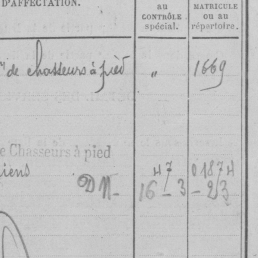 D'AFFECTATION.
AU
CONTRÔLE
spécial.
MATRICULE
ou au
répertoire.
de chasseurs à pied
"
1669
e Chasseurs à pied
iens
47
01874
DM-
16-3
-23